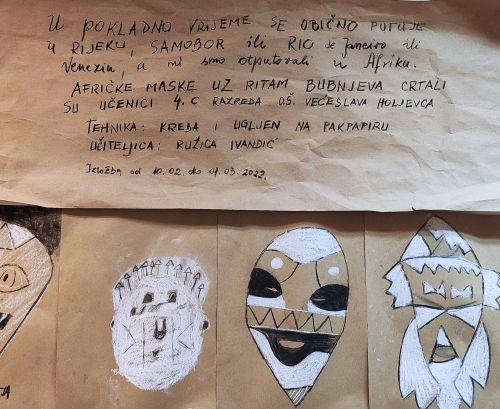 U POKLADNO VRIJEME SE OBIČNO PUTUJE
U RIJEKU, SAMOBOR ili RIO de Janeiro ili
Veneziu, a mi smo otputovali u Afriku.
AFRIČKE MASKE UZ RITAM BUBNJEVA CRTALI
SU UČENICI 4.C RAZREDA O.Š. VEĆESLAVA HOLJEVCA
TEHNIKA: KREDA I UGLJEN NA PAKPAPIRU
UČITELJICA: RUŽICA IVANDIĆ
Izložba od 10.02. do 01.03.2022.